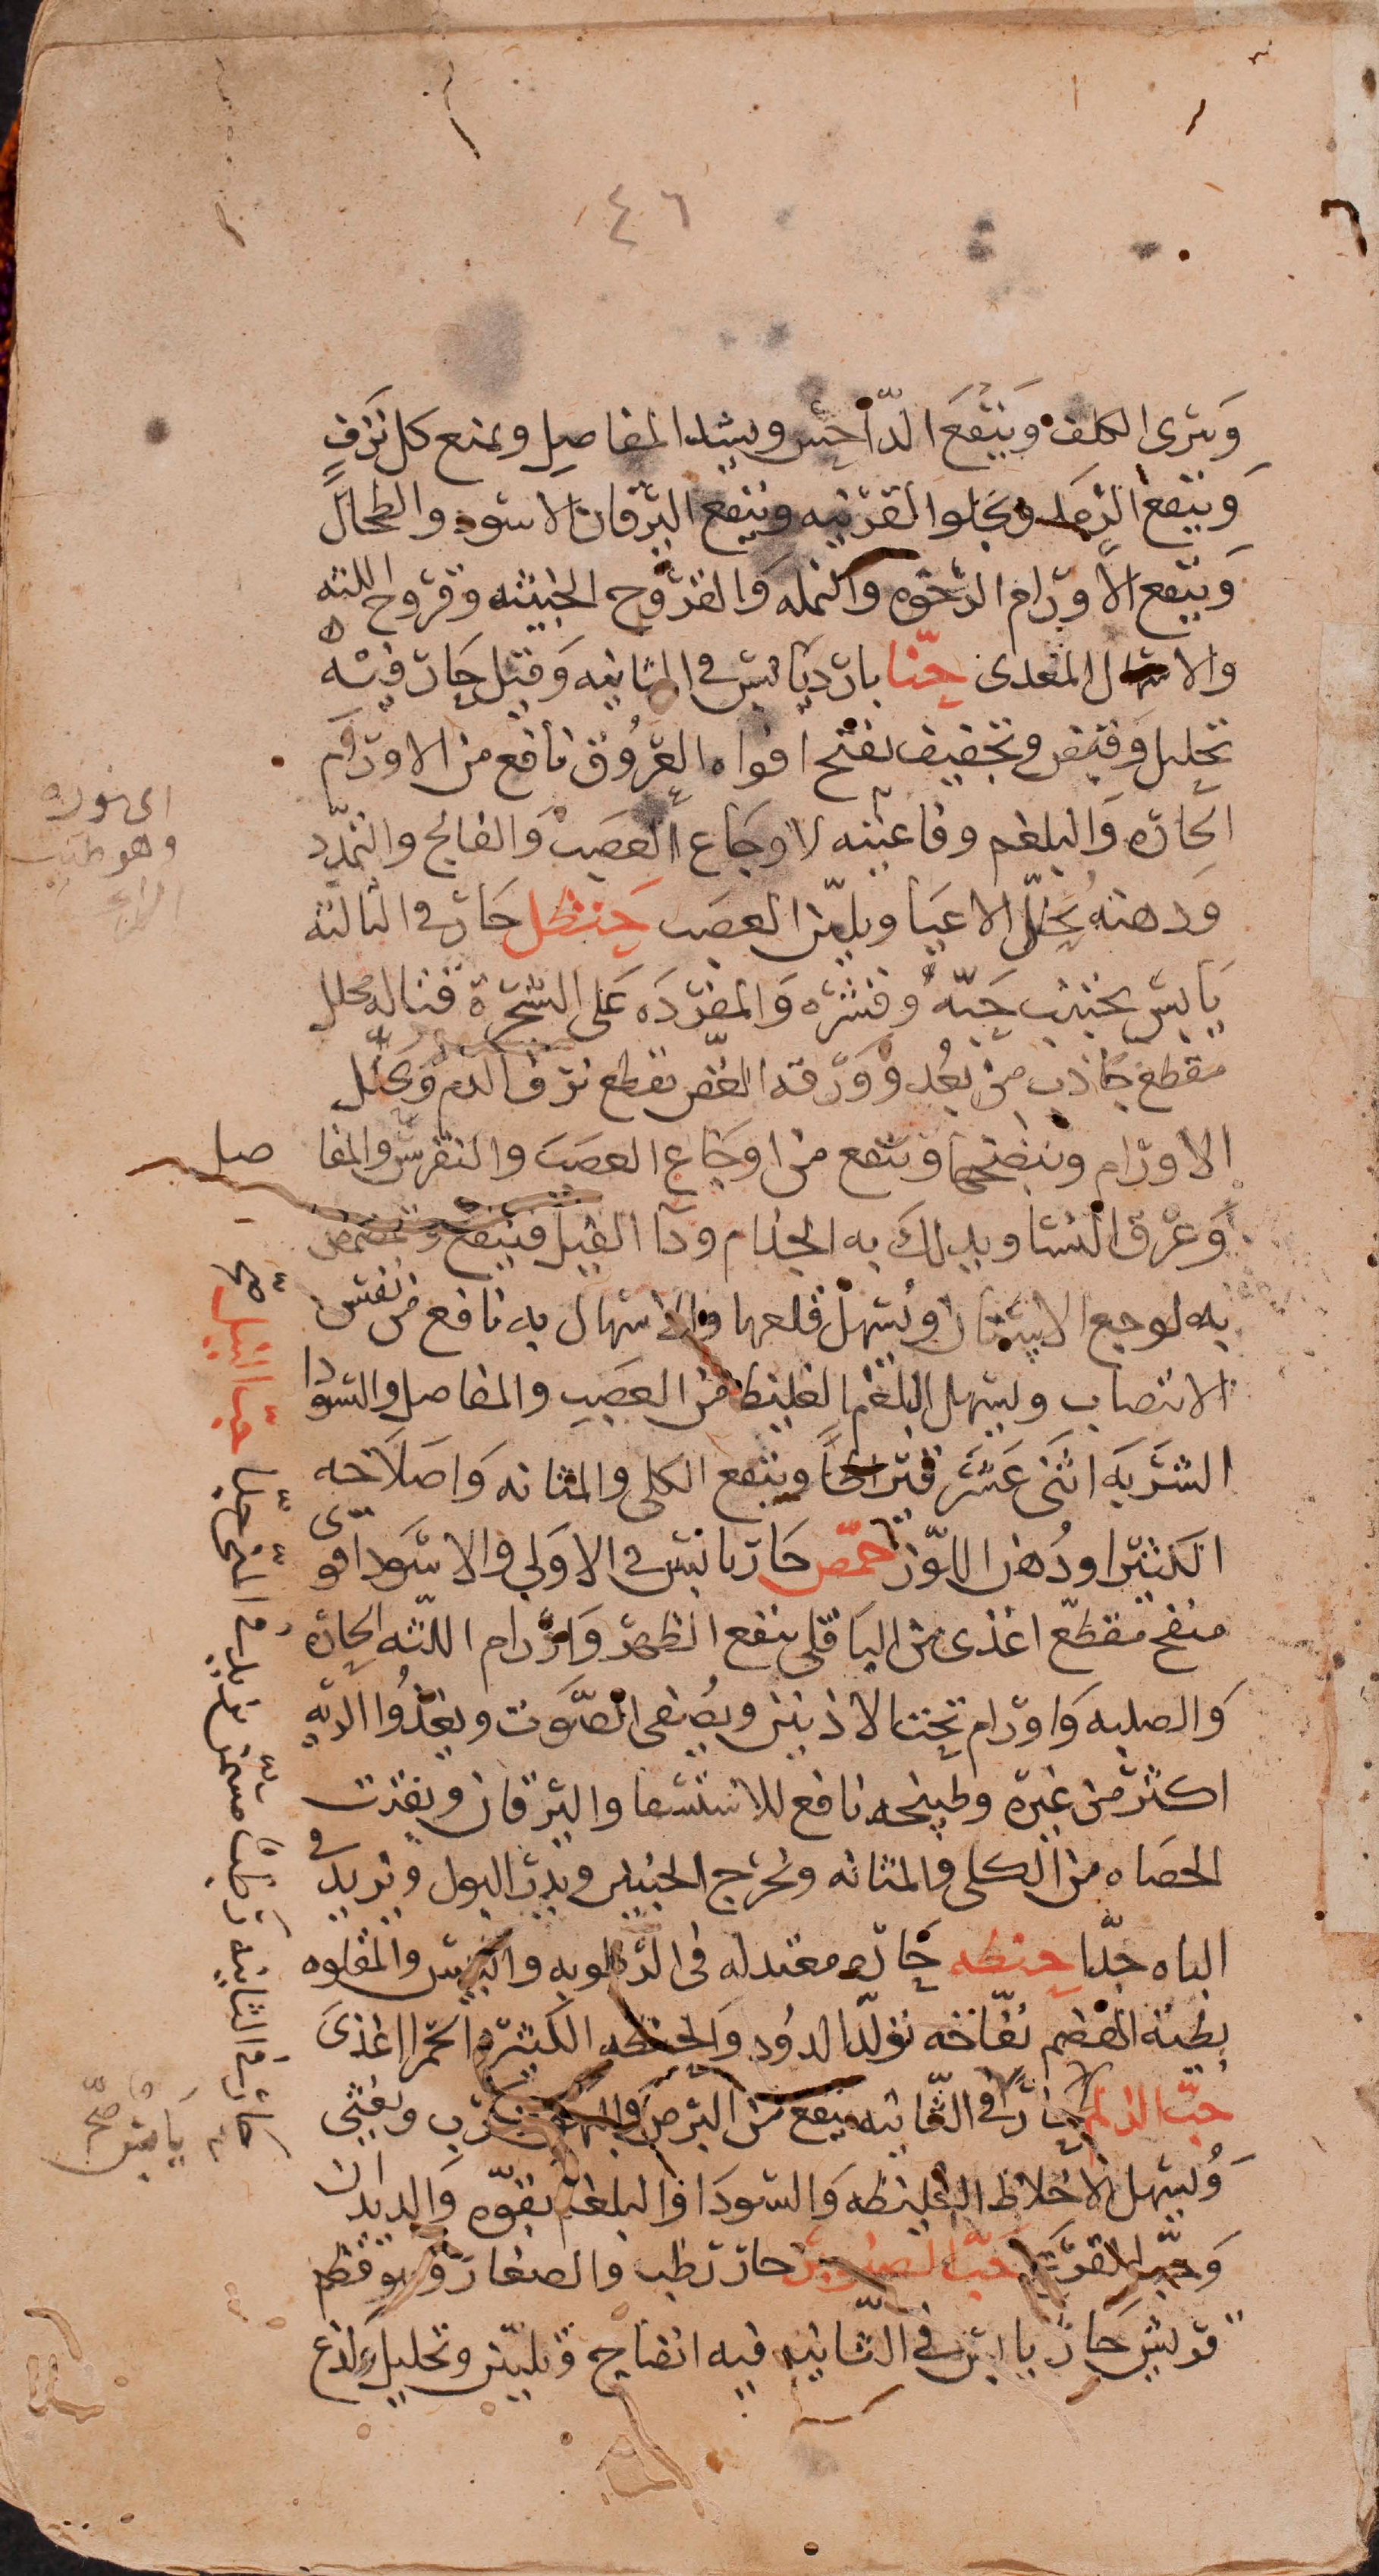 ٤٦
ويبرى الكلف وينفع الداحس ويشد المفاصل ويمنع كل نزف
وينفع الرمد ويجلوا القرنيه وينفع اليرقان الاسود والطحال
وينفع الاورام الرخوه والنمله والقروح الخبيثه وقروح اللثه
والاسهال المعدى حنا بارد يابس في الثانيه وقيل حار فيه
تحليل وقبض وتجفيف يفتح افواه العروق نافع من الاورام
الحاره والبلغم وفاغيته لاوجاع العصب والفالج والتمدد
ودهنه يحلل الاعيا ويلين العصب حنظل حار في الثالثه
يابس يجتنب حبه وقشره والمفرده على الشجرة قتاله محلل
مقطع جاذب من بعد وورقه الغض يقطع نزف الدم ويحلل
الاورام وينضجها وينفع من اوجاع العصب والنقرس والمفا
صل
وعرق النسا ويدلك به الجذام ودا الفيل فينفع ويتمضمض
به لوجع الاسنان او يسهل قلعها والاسهال به نافع من نفس
الانتصاب ويسهل البلغم الغليظ من العصب والمفاصل والسودا
الشربه اثنى عشر قيراطا وينفع الكلى والمثانه واصلاحه
الكثيرا ودهن اللوز حمص حار يابس في الاولى والاسود اقوى
منفخ مقطع اغذى من الباقلى ينفع الظهر واورام اللثه الحاره
والصلبه واورام تحت الاذنين ويصفى الصوت ويغذوا الريه
اكثر من غيره وطبيخه نافع للاستسقا واليرقان ويفتت
الحصاه من الكلى والمثانه ويخرج الجنين ويدر البول ويزيد في
الباه جدا حنطه حاره معتدله في الرطوبه واليبس والمقلوه
بطيئة الهضم نفاخه تولد الدود والحنطه الكبيره الحمرا اغذى
حب النيل حار في الثانيه ينفع من البرص والبهق يكرب ويغثى
ويسهل الاخلاط الغليظه والسودا والبلغم بقوه والديدان
وحب القرع حب الصنوبر حار رطب والصغار وهو قضم
قريش حار يابس في الثانيه فيه انضاج وتليين وتحليل ولذع
وهو طيب
حب الزلم
حار في الثانيه رطب مسمن يزيد في المنى جدا حب النيل صح
يابس صح